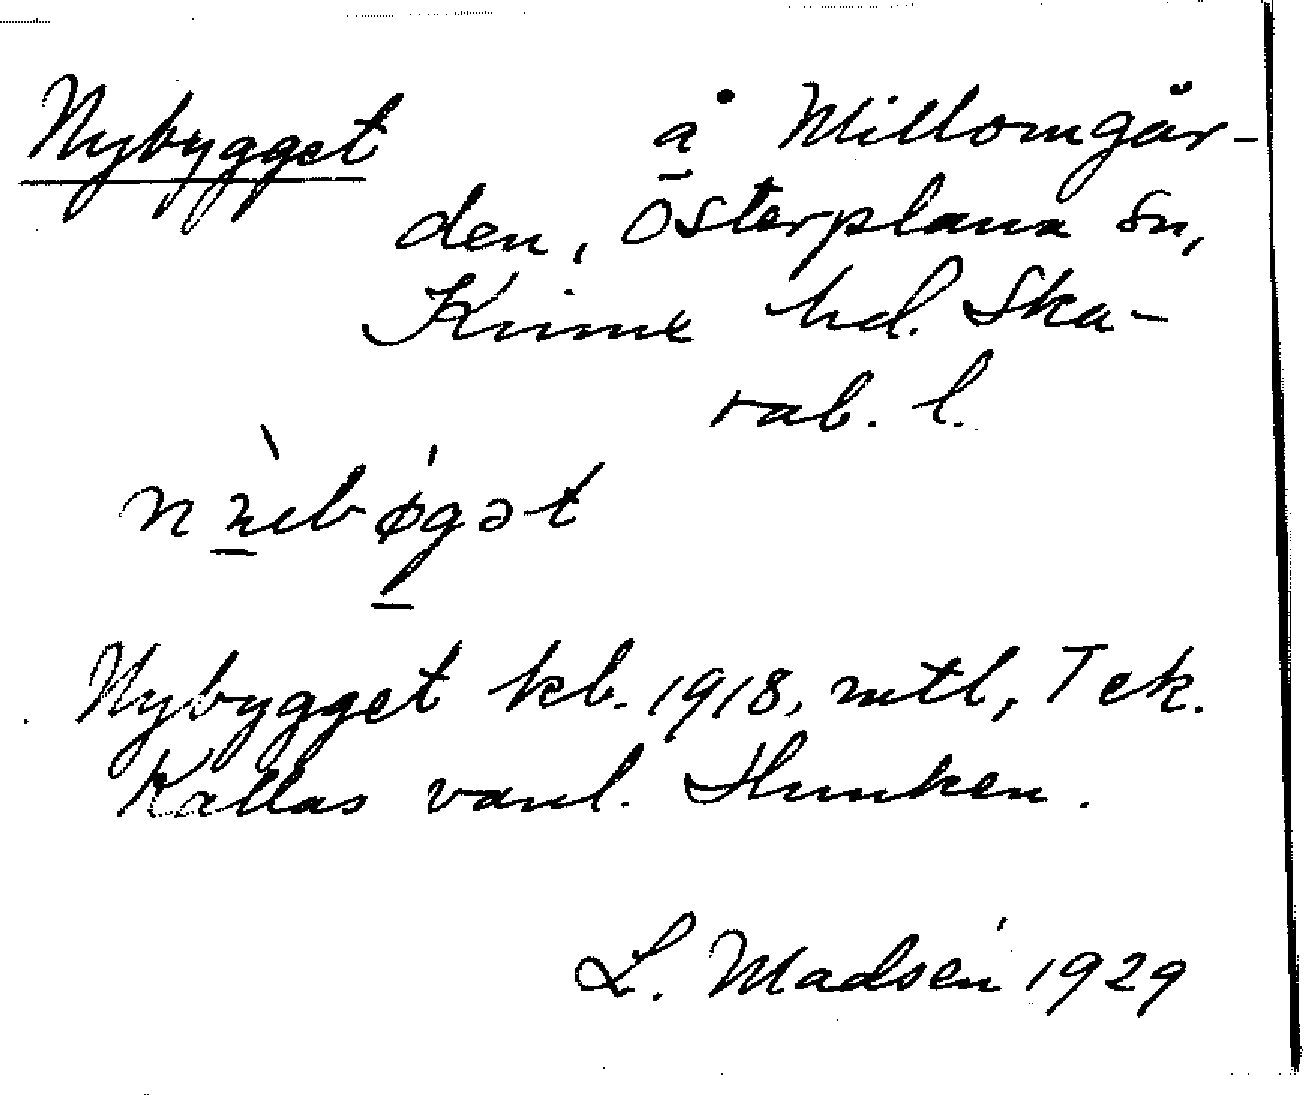 Nybygget å Millomgår-
den, Österplana sn,
Kinne hd. Ska-
rab. l.
Nybygget kb. 1918, mtl, Tek.
Kallas vanl. Hunken.
L. Madsén 1929